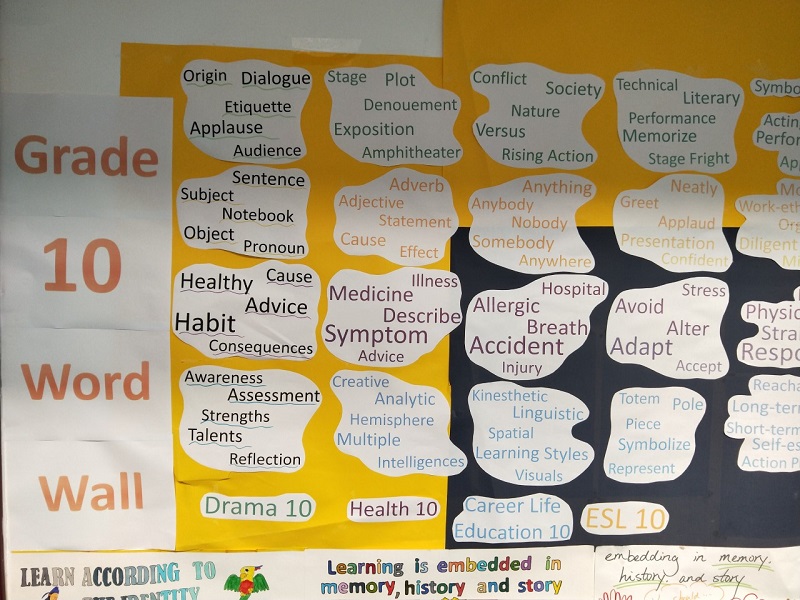 Grade
10
Word
Wall
Origin Dialogue
Etiquette
Applause
Audience
Stage Plot
Denouement
Exposition
Amphitheater
Conflict Society
Nature
Versus
Rising Action
Technical Literary
Performance
Memorize
Stage Fright
Sentence
Subject
Notebook
Object
Pronoun
Adverb
Adjective
Statement
Cause
Effect
Anything
Anybody
Nobody
Somebody
Anywhere
Neatly
Greet
Applaud
Presentation
Confident
Diligent
Healthy Cause
Advice
Habit
Consequences
Illness
Medicine
Describe
Symptom
Advice
Hospital
Allergic
Breath
Accident
Injury
Stress
Avoid
Alter
Adapt
Accept
Awareness
Assessment
Strengths
Talents
Reflection
Creative
Analytic
Hemisphere
Multiple
Intelligences
Kinesthetic
Linguistic
Spatial
Learning Styles
Visuals
Totem Pole
Piece
Symbolize
Represent
Drama 10
Health 10
Career Life
Education 10
ESL 10
LEARN ACCORDING TO
IDENTITY
Learning is embedded in
memory, history and story
embedding in memory.
history. and story